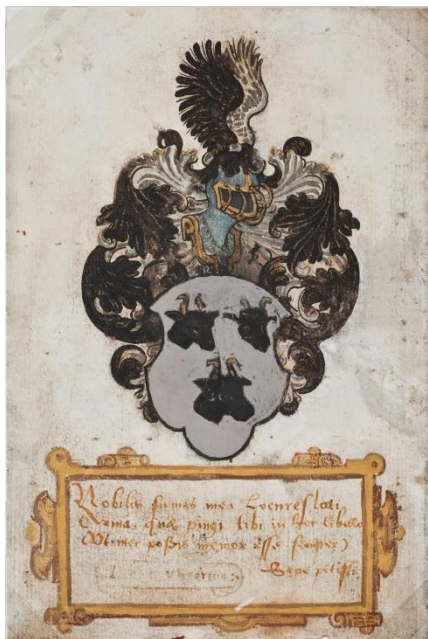 Nobilis sumas mea Loenreslati
Arma, quæ pingi tibi in hoc libello
Ut mei possis memor esse semper)
Sepe petisti.